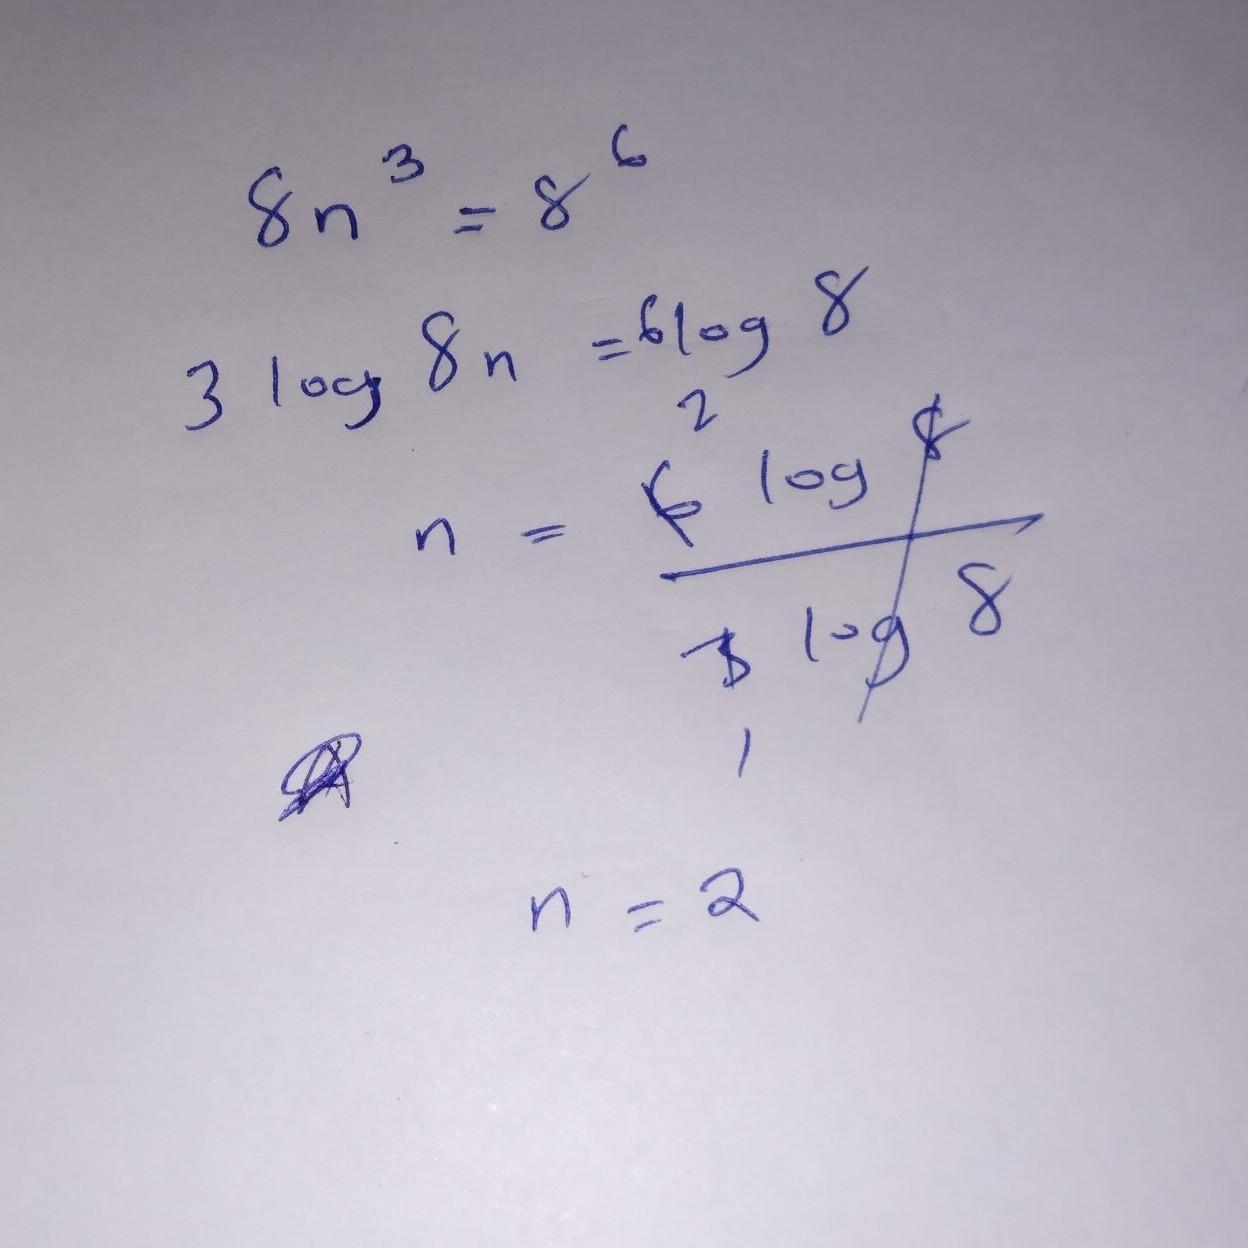 8n³ = 8⁶
3 log 8n = 6 log 8
2
n = 6 log 8
3 log 8
1
n = 2